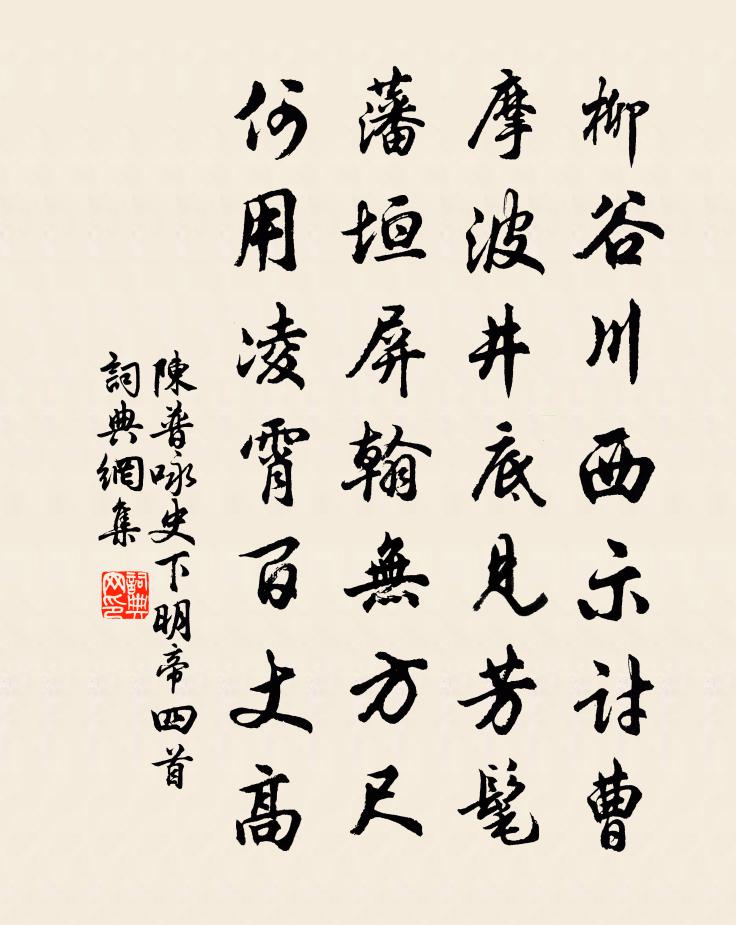 柳谷川西示討曹
摩波井底見芳髦
藩垣屏翰無方尺
何用凌霄百丈高
陳普咏史下明帝四首
詞典網集
詞典网印